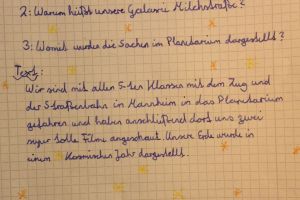 2: Warum heißt unsere Galaxie Milchstraße?
3: Womit wurden die Sachen im Planetarium dargestellt?
Text:
Wir sind mit allen 5-ten Klassen mit dem Zug und
der Straßenbahn in Mannheim in das Planetarium
gefahren und haben anschließend dort uns zwei
super tolle Filme angeschaut. Unsere Erde wurde in
einem Kosmischen Jahr dargestellt.